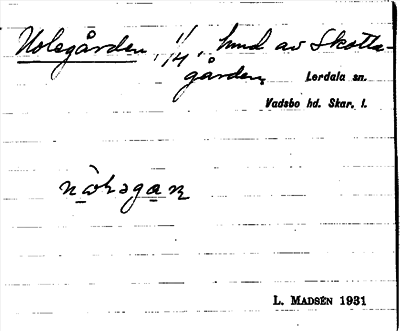 Nolsgården, 1/4, hmd av Skotta-
gården,
Lerdala sn.
Vadsbo hd. Skar. l.
L. MADSÉN 1931